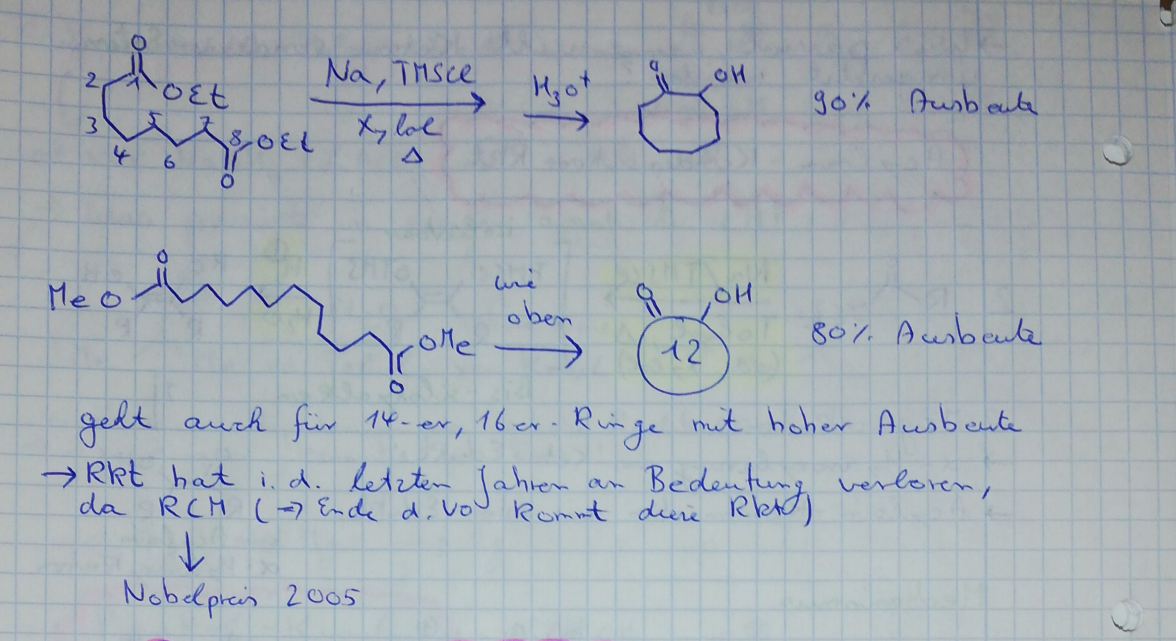 O
2 1 OEt
3 5 7 8 OEt
4 6
O
Na, TMSCl
Xylol
Δ
H3O+
O OH
90% Ausbeute
O
MeO
OMe
O
wie
oben
O OH
12
80% Ausbeute
geht auch für 14-er, 16er-Ringe mit hoher Ausbeute
→ Rkt hat i.d. letzten Jahren an Bedeutung verloren,
da RCM (→ Ende d. VO kommt diese Rkt)
↓
Nobelpreis 2005